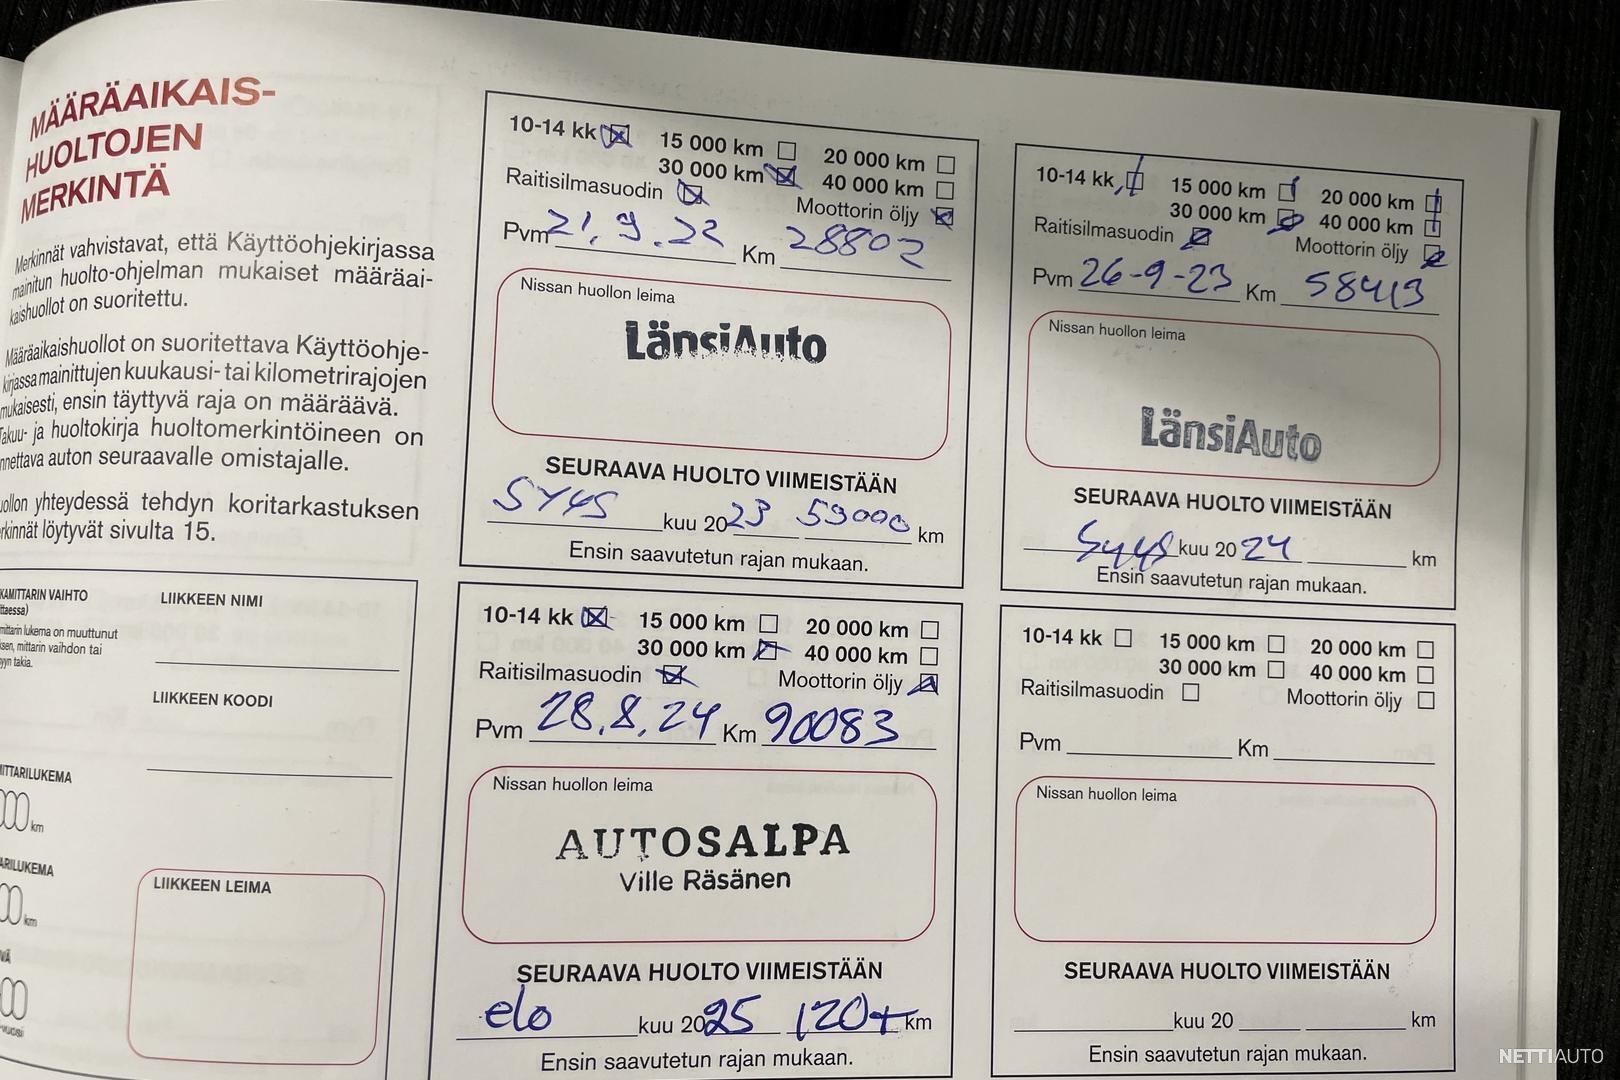 MÄÄRÄAIKAIS-
HUOLTOJEN
MERKINTÄ
Merkinnät vahvistavat, että Käyttöohjekirjassa
mainitun huolto-ohjelman mukaiset määräai-
kaishuollot on suoritettu.
Määräaikaishuollot on suoritettava Käyttöohje-
kirjassa mainittujen kuukausi- tai kilometrirajojen
mukaisesti, ensin täyttyvä raja on määräävä.
Takuu- ja huoltokirja huoltomerkintöineen on
nnettava auton seuraavalle omistajalle.
uollon yhteydessä tehdyn koritarkastuksen
rkinnät löytyvät sivulta 15.
KAMITTARIN VAIHTO
ttaessa)
mittarin lukema on muuttunut
ksen, mittarin vaihdon tai
yyn takia.
LIIKKEEN NIMI
LIIKKEEN KOODI
ITTARILUKEMA
km
ARILUKEMA
km
VÄ
vuosi
LIIKKEEN LEIMA
10-14 kk 15 000 km 20 000 km
30 000 km 40 000 km
Raitisilmasuodin Moottorin öljy
Pvm 21.9.22 Km 28802
Nissan huollon leima
LänsiAuto
SEURAAVA HUOLTO VIIMEISTÄÄN
SYYS kuu 2023 59000 km
Ensin saavutetun rajan mukaan.
10-14 kk 15 000 km 20 000 km
30 000 km 40 000 km
Raitisilmasuodin Moottorin öljy
Pvm 26-9-23 Km 58413
Nissan huollon leima
LänsiAuto
SEURAAVA HUOLTO VIIMEISTÄÄN
Syys kuu 2024 km
Ensin saavutetun rajan mukaan.
10-14 kk 15 000 km 20 000 km
30 000 km 40 000 km
Raitisilmasuodin Moottorin öljy
Pvm 28.8.24 Km 90083
Nissan huollon leima
AUTOSALPA
Ville Räsänen
SEURAAVA HUOLTO VIIMEISTÄÄN
elo kuu 2025 120t km
Ensin saavutetun rajan mukaan.
10-14 kk 15 000 km 20 000 km
30 000 km 40 000 km
Raitisilmasuodin Moottorin öljy
Pvm Km
Nissan huollon leima
SEURAAVA HUOLTO VIIMEISTÄÄN
kuu 20 km
Ensin saavutetun rajan mukaan.
NETTIAUTO